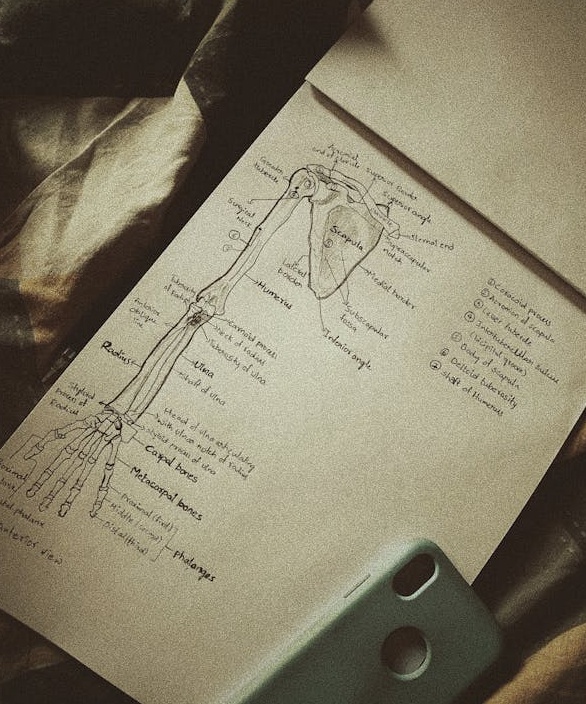 Acromial
end of clavicle
Superior border
Superior angle
Greater
tubercle
Sternal end
Suprascapular
notch
Surgical
neck
Scapula
Lateral
border
Medial border
Humerus
Subscapular
fossa
Inferior angle
Tuberosity
of radius
Anterior
oblique
line
Coronoid process
Neck of radius
Tuberosity of ulna
Radius
Ulna
Shaft of ulna
Styloid
process of
Radius
Head of ulna articulating
with ulnar notch of radius
Styloid process of ulna
Carpal bones
Metacarpal bones
Proximal (first)
Middle (second)
Distal (third)
Phalanges
Proximal
phalanx
Anterior view
① Coracoid process
② Acromion of scapula
③ Lesser tubercle
④ Intertubercular sulcus
(bicipital groove)
⑤ Body of scapula
⑥ Deltoid tuberosity
⑦ Shaft of Humerus